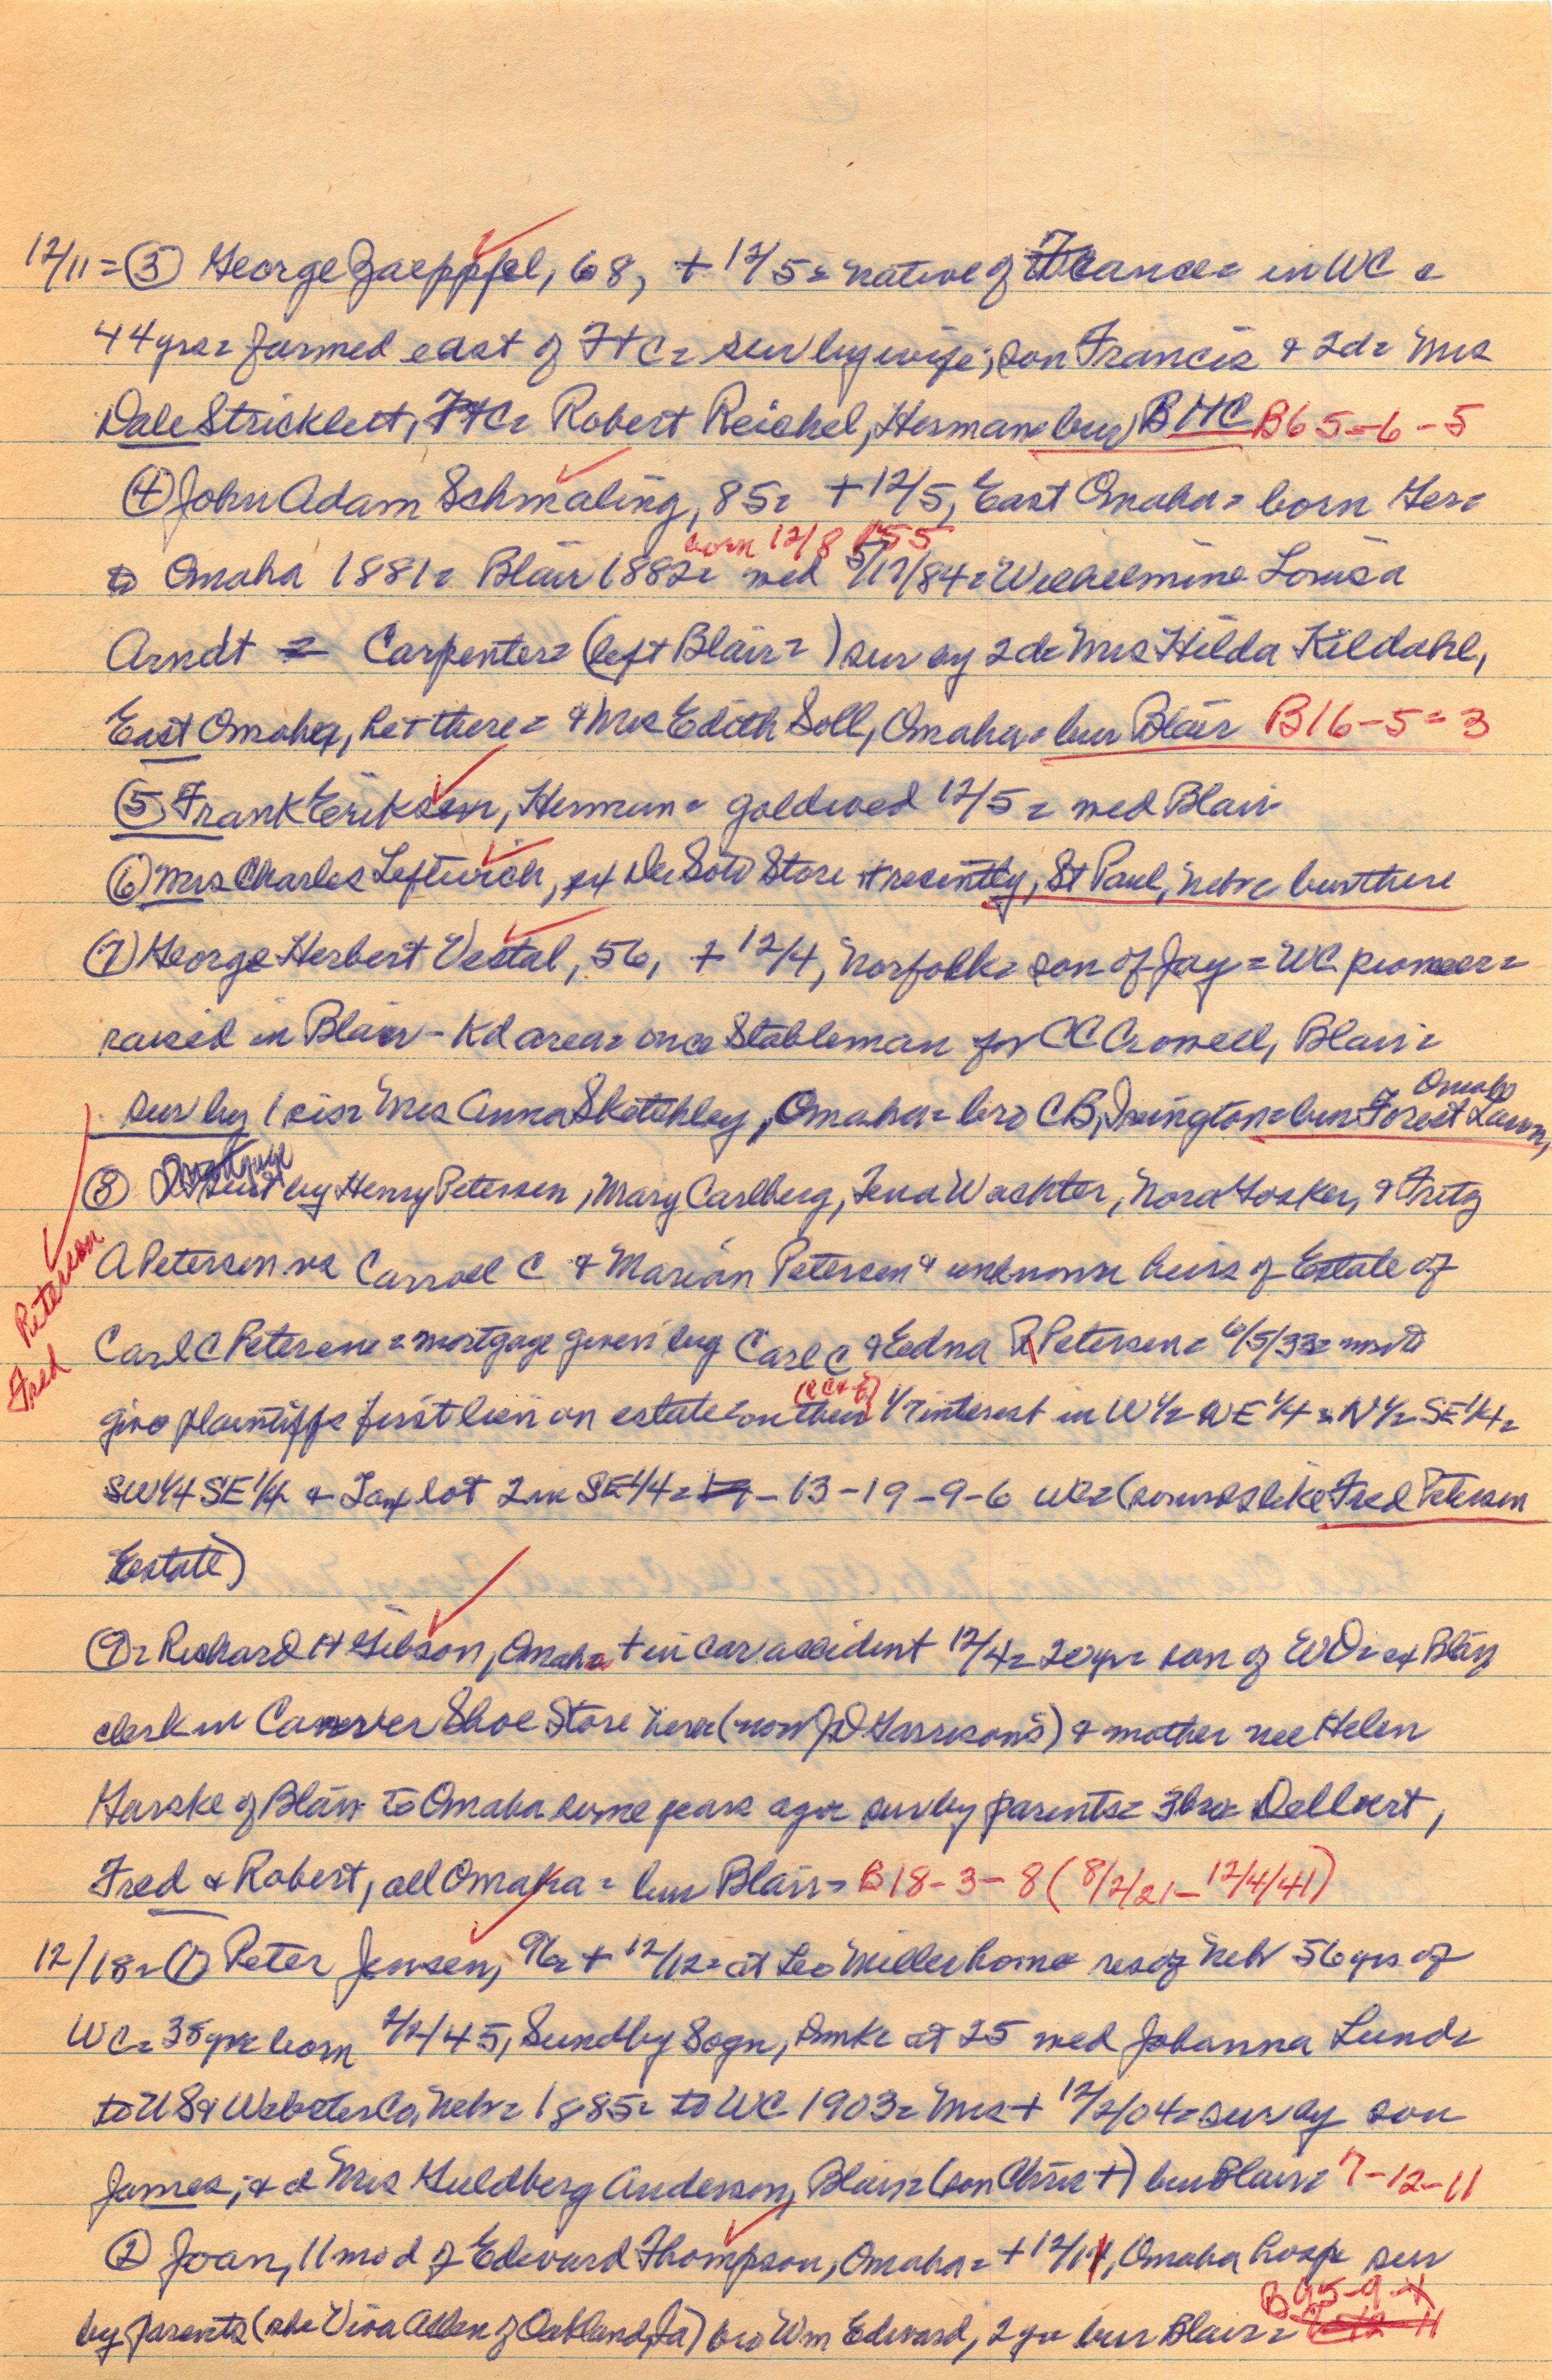 12/11 = ③ George Zaepfel, 68, + 12/5 = native of France = in WC =
44 yrs = farmed east of FtC = sur by wife; son Francis & 2d = Mrs
Dale Stricklett, FtC = Robert Reichel, Herman = bur BHC B65-6-5
④ John Adam Schmaling, 85 = + 12/5, East Omaha = born Ger =
born 12/8 1855
to Omaha 1881 = Blair 1882 = med 5/17/84 = Wilhelmine Louisa
Arndt = Carpenter = (left Blair = ) sur by 2d = Mrs Hilda Kildahl,
East Omaha, he + there = & Mrs Edith Soll, Omaha = bur Blair B16-5=3
⑤ Frank Eriksen, Herman = gold wed 12/5 = med Blair
⑥ Mrs Charles Leftwich, ex DeSoto Store + recently, St Paul, Nebr = bur there
⑦ George Herbert Vestal, 56, + 12/4, Norfolk = son of Jay = WC pioneer =
raised in Blair - Kd area = once Stableman for CC Crowell, Blair =
sur by 1 sis = Mrs Anna Sketchley, Omaha = bro CB, Irvington = bur Forest Lawn, Omaha
⑧ Mortgage suit by Henry Petersen, Mary Carlberg, Tena Wachter, Nora Gosker, & Fritz
A Petersen vs Carroll C & Marian Petersen & unknown heirs of Estate of
Carl C Petersen = mortgage given by Carl C & Edna R Petersen = 6/5/33 =
give plaintiffs first lien on estate = on their (CC & E) 1/7 interest in W 1/2 NE 1/4 = N 1/2 SE 1/4 =
SW 1/4 SE 1/4 & Tax lot 2 in SE 1/4 = 13-19-9-6 WC = (sounds like Fred Petersen
Estate)
Petersen
Fred
⑨ = Richard H Gibson, Omaha + in car accident 12/4 = 20 yr = son of WD = ex Blair
clerk in Carver Shoe Store here (now JD Garrison's) & mother nee Helen
Garske of Blair to Omaha some years ago = sur by parents = 3 bro = Delbert,
Fred & Robert, all Omaha = bur Blair = B18-3-8 (8/2/21-12/4/41)
12/18 = ① Peter Jensen, 96 = + 12/12 = at Leo Miller home res of Neb 56 yrs of
WC = 38 yrs = born 2/2/45, Sundby Sogn, Dmk = at 25 med Johanna Lund =
to US & Webster Co, Nebr = 1885 = to WC 1903 = Mrs + 12/2/04 = sur by son
James; & d Mrs Guldberg Anderson, Blair = (son Chris +) bur Blair = 7-12-11
② Joan, 11 mo d of Edward Thompson, Omaha = + 12/11, Omaha hosp = sur
by parents (she Viva Allen of Oakland, Ia) bro Wm Edward, 2 yr = bur Blair = B95-9-X